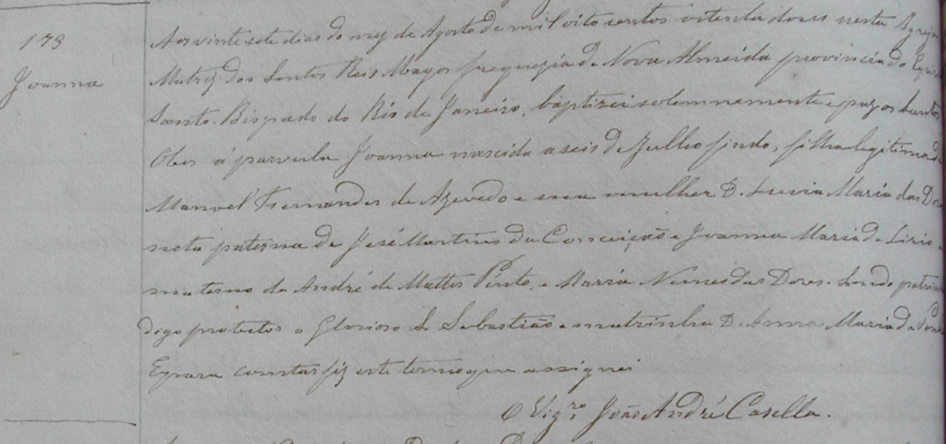 173
Joanna
Aos vinte sete dias do mez de Agosto de mil oito centos oitenta dous nesta Igreja
Matriz dos Santos Reis Magos freguezia de Nova Almeida provincia do Espirito
Santo Bispado do Rio de Janeiro, baptizei solemnemente e puz os Santos
Oleos á parvula Joanna nascida a seis de Julho findo, filha legitima de
Manoel Fernandes de Azevedo e sua mulher D. Lucia Maria das Dores
neta paterna de José Martins da Conceição e Joanna Maria de Lirio
materna de André de Mattos Pinto, e Maria Nunes das Dores. Sendo padrinho
digo protector o Glorioso S. Sebastião e madrinha D. Anna Maria da
E para constar fiz este termo que assignei
O Vigrº João André Casella.